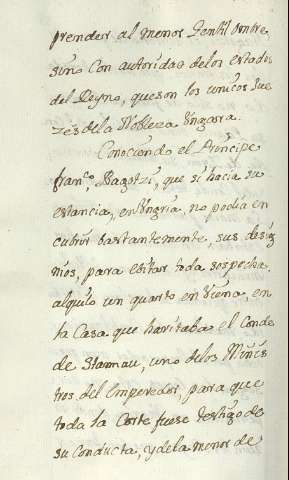 prender al menor Gentil ombre
sino con autoridad delos estados
del Reyno, que son los unicos Jue
zes dela Nobleza Ungara.
Conociendo el Principe
franco. Ragotzi, que si hacia su
estancia, en Ungria, no podia en
cubrir bastantemente, sus desig
nios, para evitar toda sospecha,
alquilo un quarto en Viena, en
la Casa que havitaba el Conde
de Starnau, uno delos Minis
tros, del Emperador, para que
toda la Corte fuese testigo de
su conducta, y dela menor de